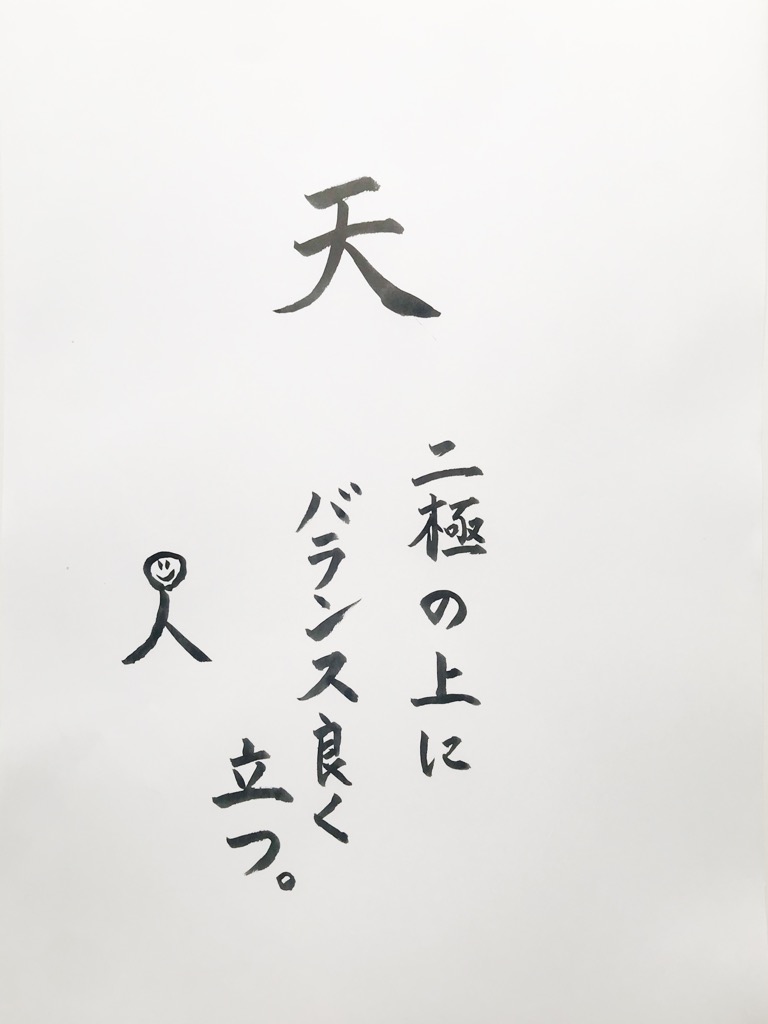 天
二極の上に
バランス良く
立つ。